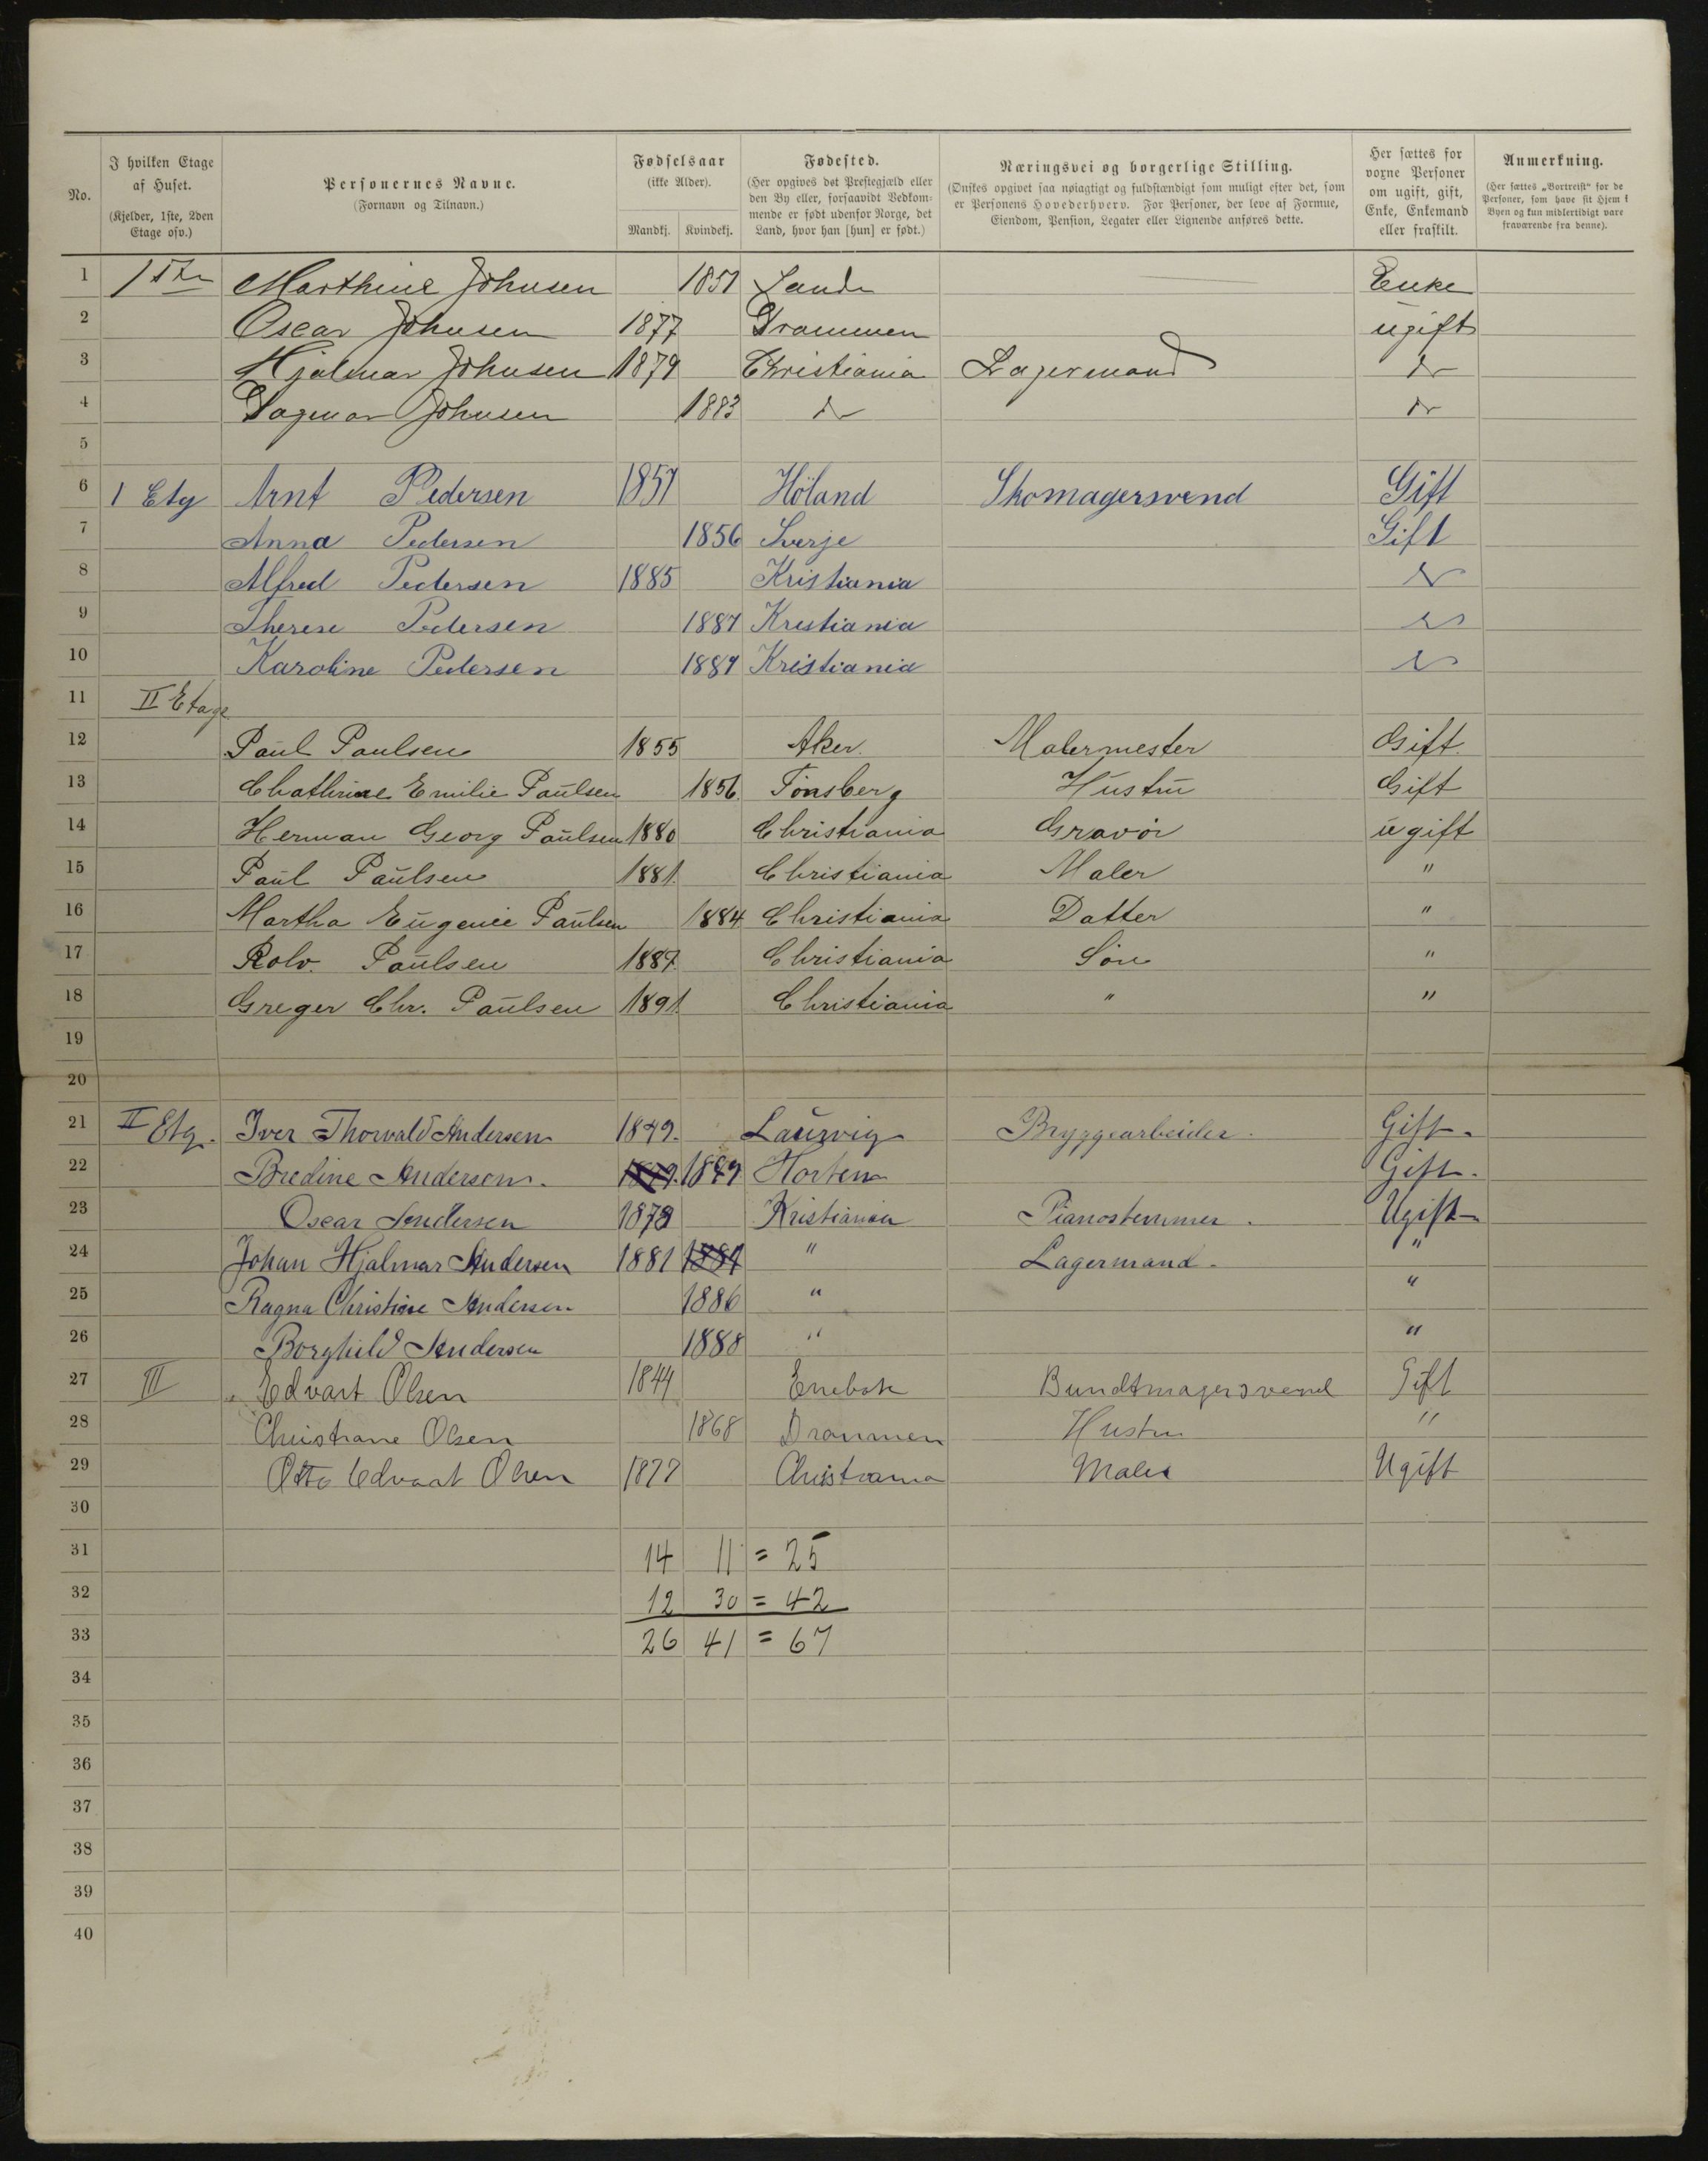 No. | I hvilken Etage af Huset. (Kjelder, 1ste, 2den Etage osv.) | Personernes Navne. (Fornavn og Tilnavn.) | Fødselsaar (ikke Alder). Mandkj. Kvindekj. | Fødested. (Her opgives det Prestegjæld eller den By eller, forsaavidt Vedkommende er født udenfor Norge, det Land, hvor han [hun] er født.) | Næringsvei og borgerlige Stilling. (Ønskes opgivet saa nøiagtigt og fuldstændigt som muligt efter det, som er Personens Hovederhverv. For Personer, der leve af Formue, Eiendom, Pension, Legater eller Lignende anføres dette. | Her sættes for voxne Personer om ugift, gift, Enke, Enkemand eller fraskilt. | Anmerkning. (Her sættes „Bortreist“ for de Personer, som have sit Hjem i Byen og kun midlertidigt vare fraværende fra denne).
1 1ste Marthine Johnsen 1851 Sande Enke
2 Oscar Johnsen 1877 Drammen ugift
3 Hjalmar Johnsen 1879 Christiania Lagermand do
4 Dagmar Johnsen 1883 do do
5
6 1 Etg Arnt Pedersen 1857 Höland Skomagersvend Gift
7 Anna Pedersen 1856 Sverje Gift
8 Alfred Pedersen 1885 Kristiania
9 Therese Pedersen 1887 Kristiania
10 Karoline Pedersen 1889 Kristiania
11 II Etage
12 Paul Paulsen 1855 Aker. Malermester Gift.
13 Chathrine Emilie Paulsen 1856. Tönsberg Hustru Gift
14 Herman Georg Paulsen 1880 Christiania Gravör ugift
15 Paul Paulsen 1881. Christiania Maler "
16 Martha Eugenie Paulsen 1884 Christiania Datter "
17 Rolv. Paulsen 1887. Christiania Sön "
18 Greger Chr. Paulsen 1891. Christiania " "
19
20
21 II Etg. Iver Thorvald Andersen 1849. Laurvig Bryggearbeider. Gift.
22 Bredine Andersen. 1849 Horten Gift.
23 Oscar Andersen 1879 Kristiania Pianostemmer. Ugift
24 Johan Hjalmar Andersen 1881 " Lagermand. "
25 Ragna Christine Andersen 1886 " "
26 Borghild Andersen 1888 " "
27 III Edvart Olsen 1844 Enebak Bundtmagersvend Gift
28 Christiane Olsen 1868 Drammen Hustru "
29 Otto Edvart Olsen 1877 Christiania Maler Ugift
30
31 14 11 = 25
32 12 30 = 42
33 26 41 = 67
34
35
36
37
38
39
40